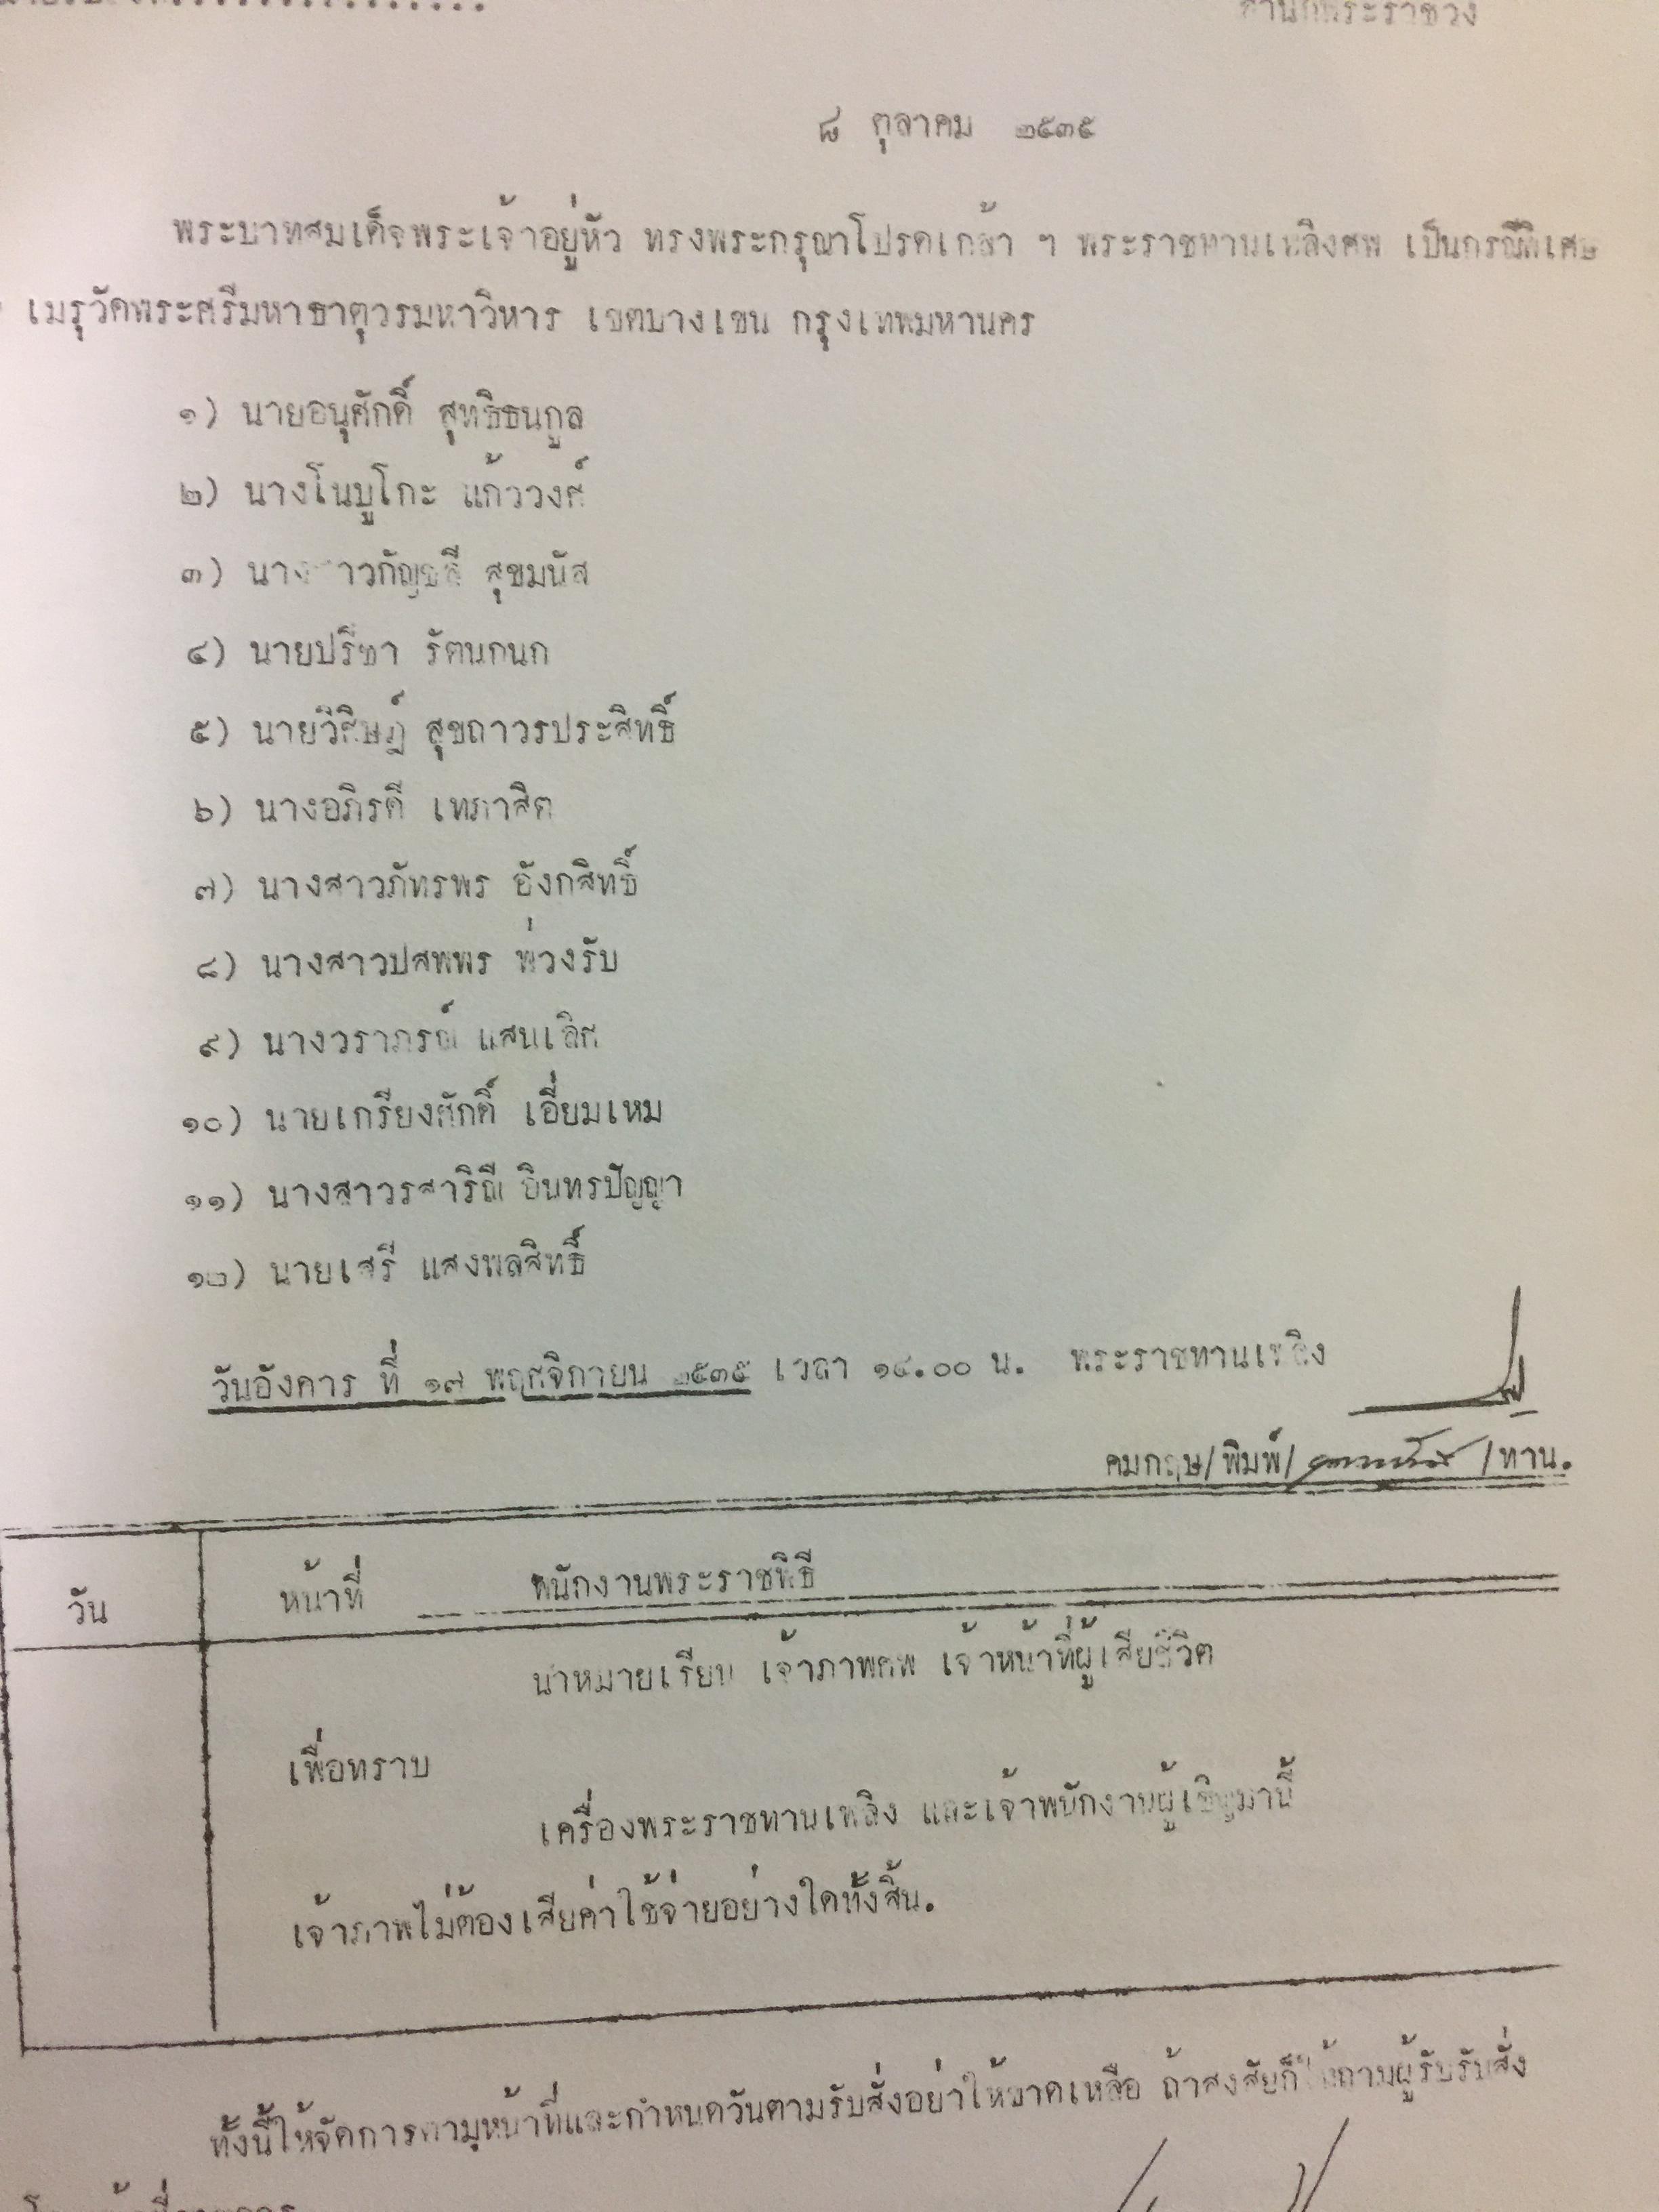 สำนักพระราชวัง
๘ ตุลาคม ๒๕๓๕
พระบาทสมเด็จพระเจ้าอยู่หัว ทรงพระกรุณาโปรดเกล้า ฯ พระราชทานเพลิงศพ เป็นกรณีพิเศษ
เมรุวัดพระศรีมหาธาตุวรมหาวิหาร เขตบางเขน กรุงเทพมหานคร
๑) นายอนุศักดิ์ สุทธิธนกูล
๒) นางโนบูโกะ แก้ววงศ์
๓) นางสาวกัญชลี สุขมนัส
๔) นายปรีชา รัตนกนก
๕) นายวิศิษฎ์ สุขถาวรประสิทธิ์
๖) นางอภิรดี เทภาสิต
๗) นางสาวภัทรพร อังกสิทธิ์
๘) นางสาวปสพพร พ่วงรับ
๙) นางวราภรณ์ แสนเลิศ
๑๐) นายเกรียงศักดิ์ เอี่ยมเหม
๑๑) นางสาวรสาริณี อินทรปัญญา
๑๒) นายเสรี แสงพลสิทธิ์
วันอังคาร ที่ ๑๗ พฤศจิกายน ๒๕๓๕ เวลา ๑๔.๐๐ น. พระราชทานเพลิง
คมกฤษ/พิมพ์/ /ทาน.
วัน หน้าที่ พนักงานพระราชพิธี
นำหมายเรียน เจ้าภาพศพ เจ้าหน้าที่ผู้เสียชีวิต
เพื่อทราบ
เครื่องพระราชทานเพลิง และเจ้าพนักงานผู้เชิญมานี้
เจ้าภาพไม่ต้องเสียค่าใช้จ่ายอย่างใดทั้งสิ้น.
ทั้งนี้ให้จัดการตามหน้าที่และกำหนดวันตามรับสั่งอย่าให้ขาดเหลือ ถ้าสงสัยก็ให้ถามผู้รับรับสั่ง